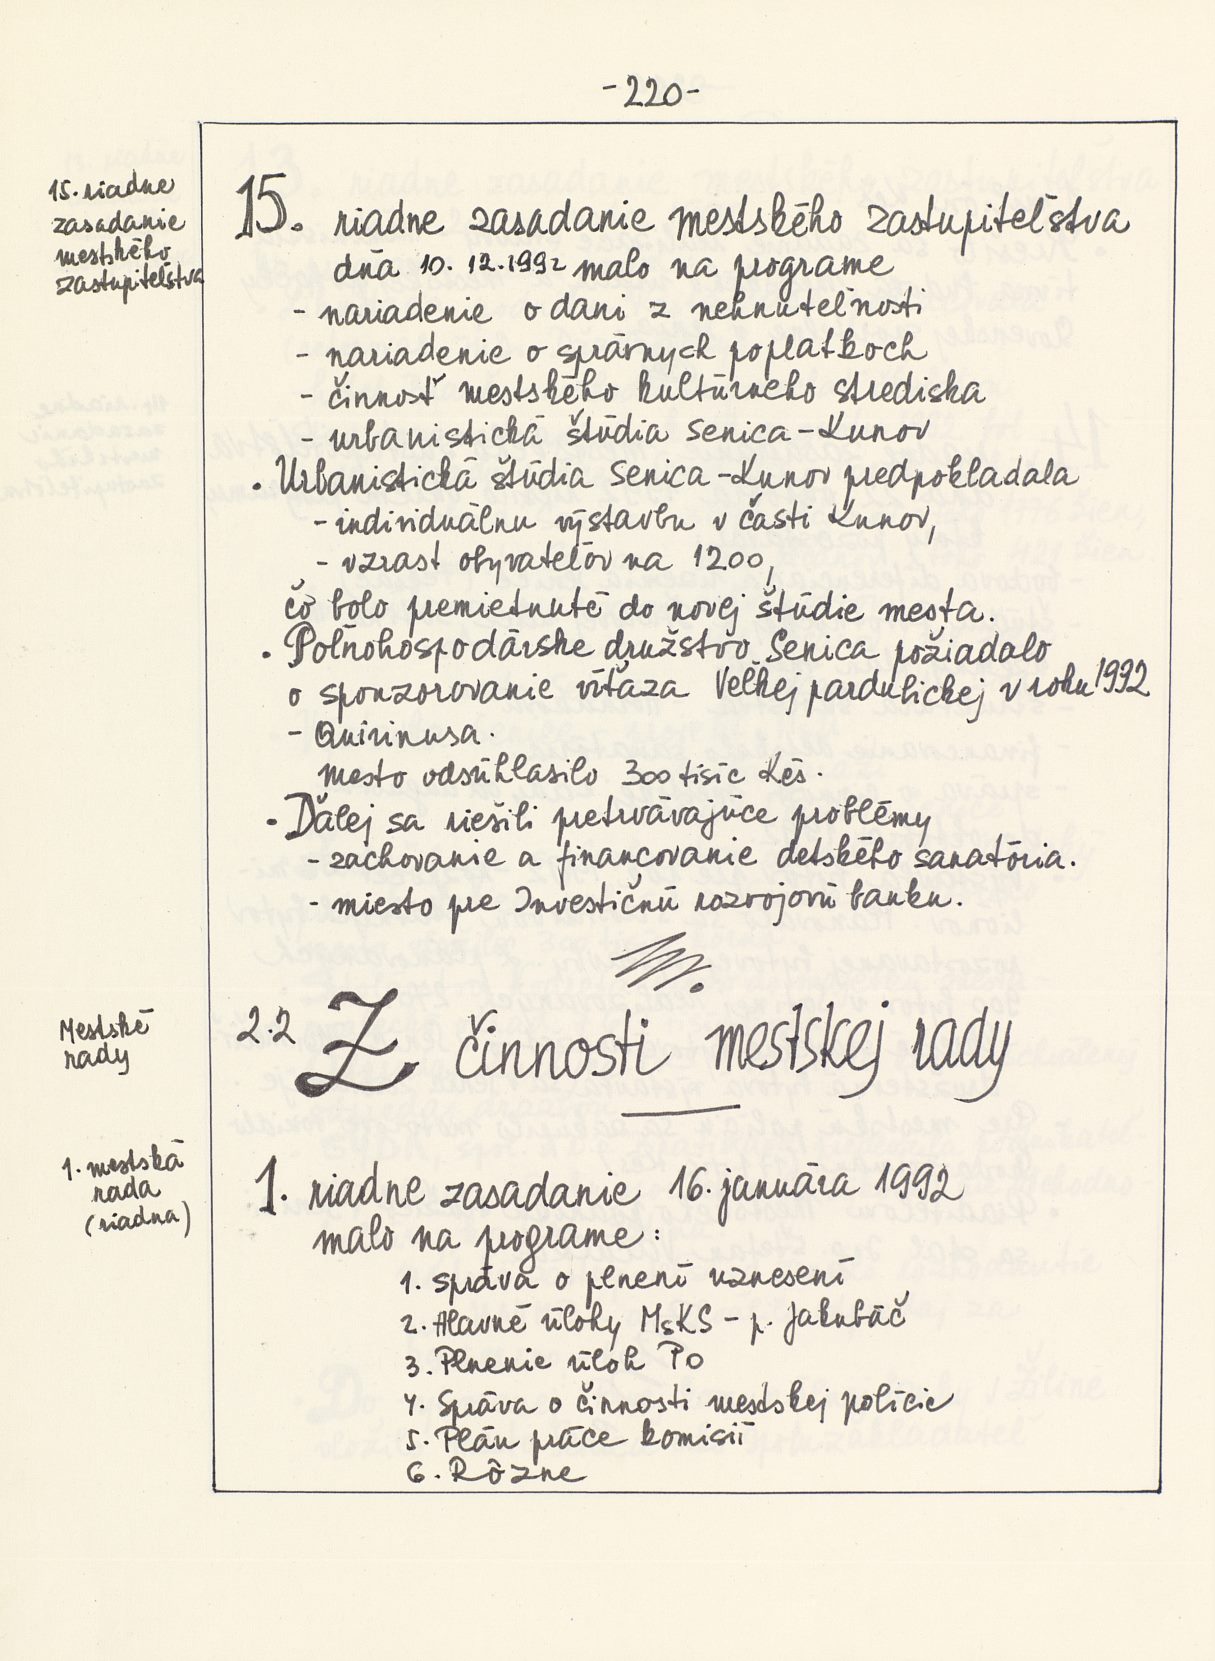 -220-
15. riadne
zasadanie
mestského
zastupiteľstva
15. riadne zasadanie mestského zastupiteľstva
dňa 10. 12. 1992 malo na programe
- nariadenie o dani z nehnuteľnosti
- nariadenie o správnych poplatkoch
- činnosť mestského kultúrneho strediska
- urbanistická štúdia Senica-Kunov
• Urbanistická štúdia Senica-Kunov predpokladala
- individuálnu výstavbu v časti Kunov,
- vzrast obyvateľov na 1200,
čo bolo premietnuté do novej štúdie mesta.
• Poľnohospodárske družstvo Senica požiadalo
o sponzorovanie víťaza Veľkej pardubickej v roku 1992
- Quirinusa.
mesto odsúhlasilo 300 tisíc Kčs.
• Ďalej sa riešili pretrvávajúce problémy
- zachovanie a financovanie detského sanatória.
- miesto pre Investičnú rozvojovú banku.
Mestské
rady
2.2 Z činnosti mestskej rady
1. mestská
rada
(riadna)
1. riadne zasadanie 16. januára 1992
malo na programe:
1. správa o plnení uznesení
2. Hlavné úlohy MsKS - p. Jakubáč
3. Plnenie úloh PO
4. Správa o činnosti mestskej polície
5. Plán práce komisií
6. Rôzne